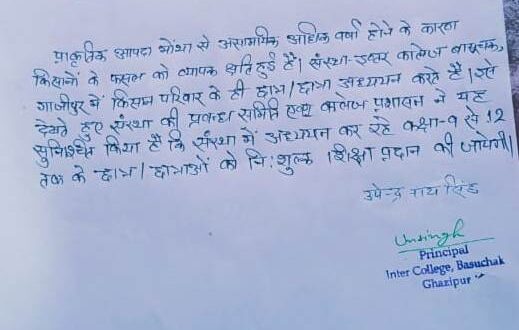 प्राकृतिक आपदा मोंथा से असामयिक अधिक वर्षा होने के कारण
किसानों के फसल को व्यापक क्षति हुई है। संस्था-इण्टर कालेज बासूचक,
गाजीपुर में किसान परिवार के ही छात्र/छात्रा अध्ययन करते है। इसे
देखते हुए संस्था की प्रबन्ध समिति एवम कालेज प्रशासन ने यह
सुनिश्चित किया है कि संस्था में अध्ययन कर रहे कक्षा-9 से 12
तक के छात्र/छात्राओं को नि:शुल्क शिक्षा प्रदान की जायेगी।
उपेन्द्र राय सिंह
Unsingh
Principal
Inter College, Basuchak
Ghazipur